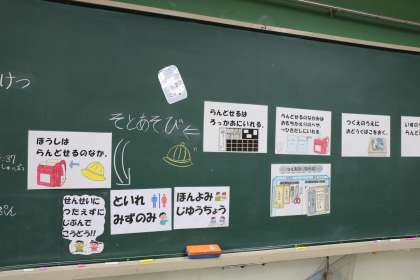 けつ
そとあそび
らんどせるは
ろっかあにいれる。
らんどせるのなかみは
おもちかえりのへや、
つひだしにいれる。
つくえのうえに
おどうぐばこをおく。
ぼうしは
らんどせるのなか。
せんせいに
つたえずに
じぶんで
こうどう!!
といれ
みずのみ
ほんよみ
じゆうちょう